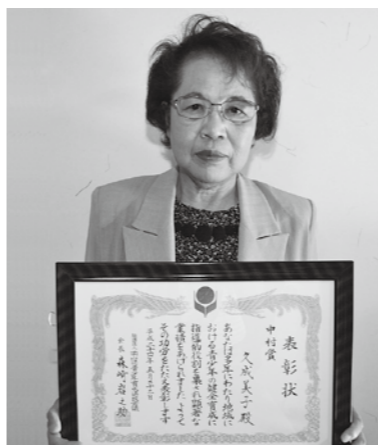 表彰状
中村賞
久成美子殿
あなたは多年にわたり地域に
おける青少年の健全育成に
指導的役割を果たされ顕著な
業績をあげられました よって
その功労をたたえ表彰します
平成二十四年五月
会長